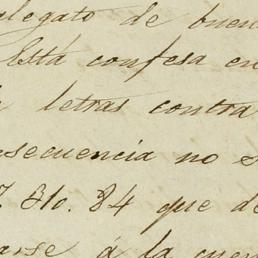 alegato de buen
Esta confesa en
letras contra
secuencia no s
Blo. 84 que de
arse á la cuen